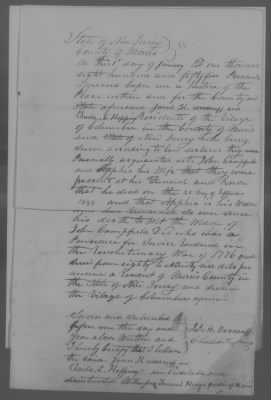 State of New Jersey
County of Morris } SS.
On this day of January AD one thousand
eight hundred and fifty five Personally
appeared before me a Justice of the
Peace within and for the County and
State aforesaid James H. Woodruff and
Charles L. Hopping Residents of the Village
of Columbia in the County of Morris
and State of New Jersey who being
sworn according to law declare they were
Personally acquainted with John Campfield
and Sophia his Wife that they were
present at his funeral and know
that he died on the
and that Sophia is his Widow
and has remained so ever since
his death to Wit the Widow of
John Campfield D.C. who was a
Pensioner for Service rendered in
the Revolutionary War of 1776 and
drew from eighty to ninety six dolls per
annum a resident of Morris County in
the State of New Jersey and died in
the Village of Columbia aforesaid
Sworn and subscribed to
before me the day and
year above written and
I hereby certify that I believe
the said James H. Woodruff and
Charles L. Hopping are credible
disinterested witnesses